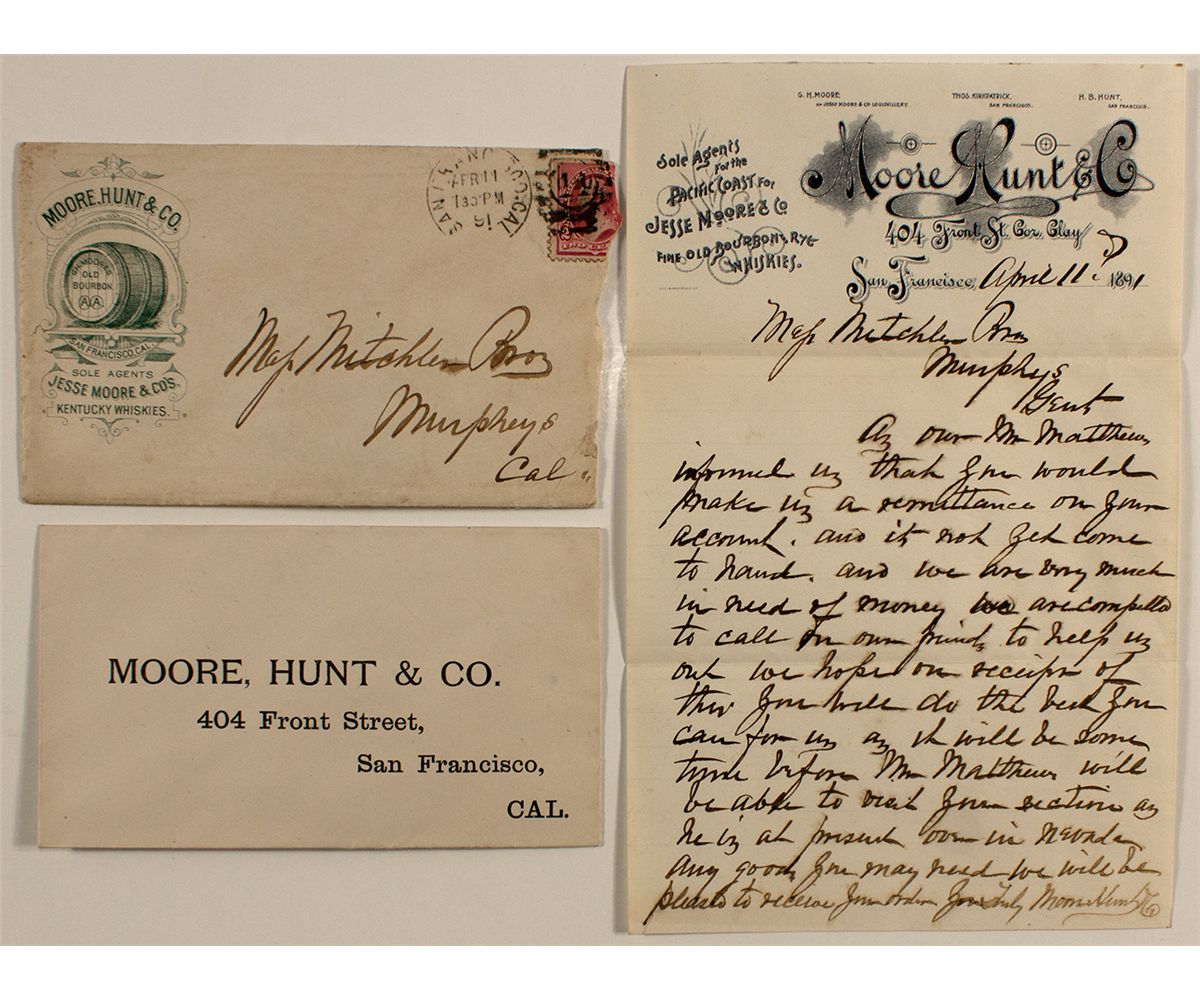 MOORE, HUNT & CO.
G.H. MOORE'S
OLD
BOURBON
AA
SAN FRANCISCO, CAL.
SOLE AGENTS
JESSE MOORE & CO'S.
KENTUCKY WHISKIES.
SAN FRANCISCO, CAL.
APR 11
PM
91
TWO CENTS
Mess Mitchler Bros
Murpheys
Cal
MOORE, HUNT & CO.
404 Front Street,
San Francisco,
CAL.
G. H. MOORE
OF JESSE MOORE & CO. LOUISVILLE KY.
THOS. KIRKPATRICK,
SAN FRANCISCO.
H. B. HUNT,
SAN FRANCISCO.
Sole Agents
for the
PACIFIC COAST FOR
JESSE MOORE & CO
FINE OLD BOURBON & RYE
WHISKIES.
Moore Hunt & Co
404 Front St. Cor. Clay
San Francisco, April 11th 1891
Mess Mitchler Bros
Murpheys
Gent
As our Mr Matthews
informed us that you would
make us a remittance on your
account. and its not yet come
to hand. and we are very much
in need of money we are compelled
to call on our friends to help us
out we hope on receipt of
this you will do the best you
can for us as it will be some
time before Mr Matthews will
be able to visit your section as
he is at present over in Nevada
Any goods you may need we will be
pleased to receive your order Yours Truly Moore Hunt & Co